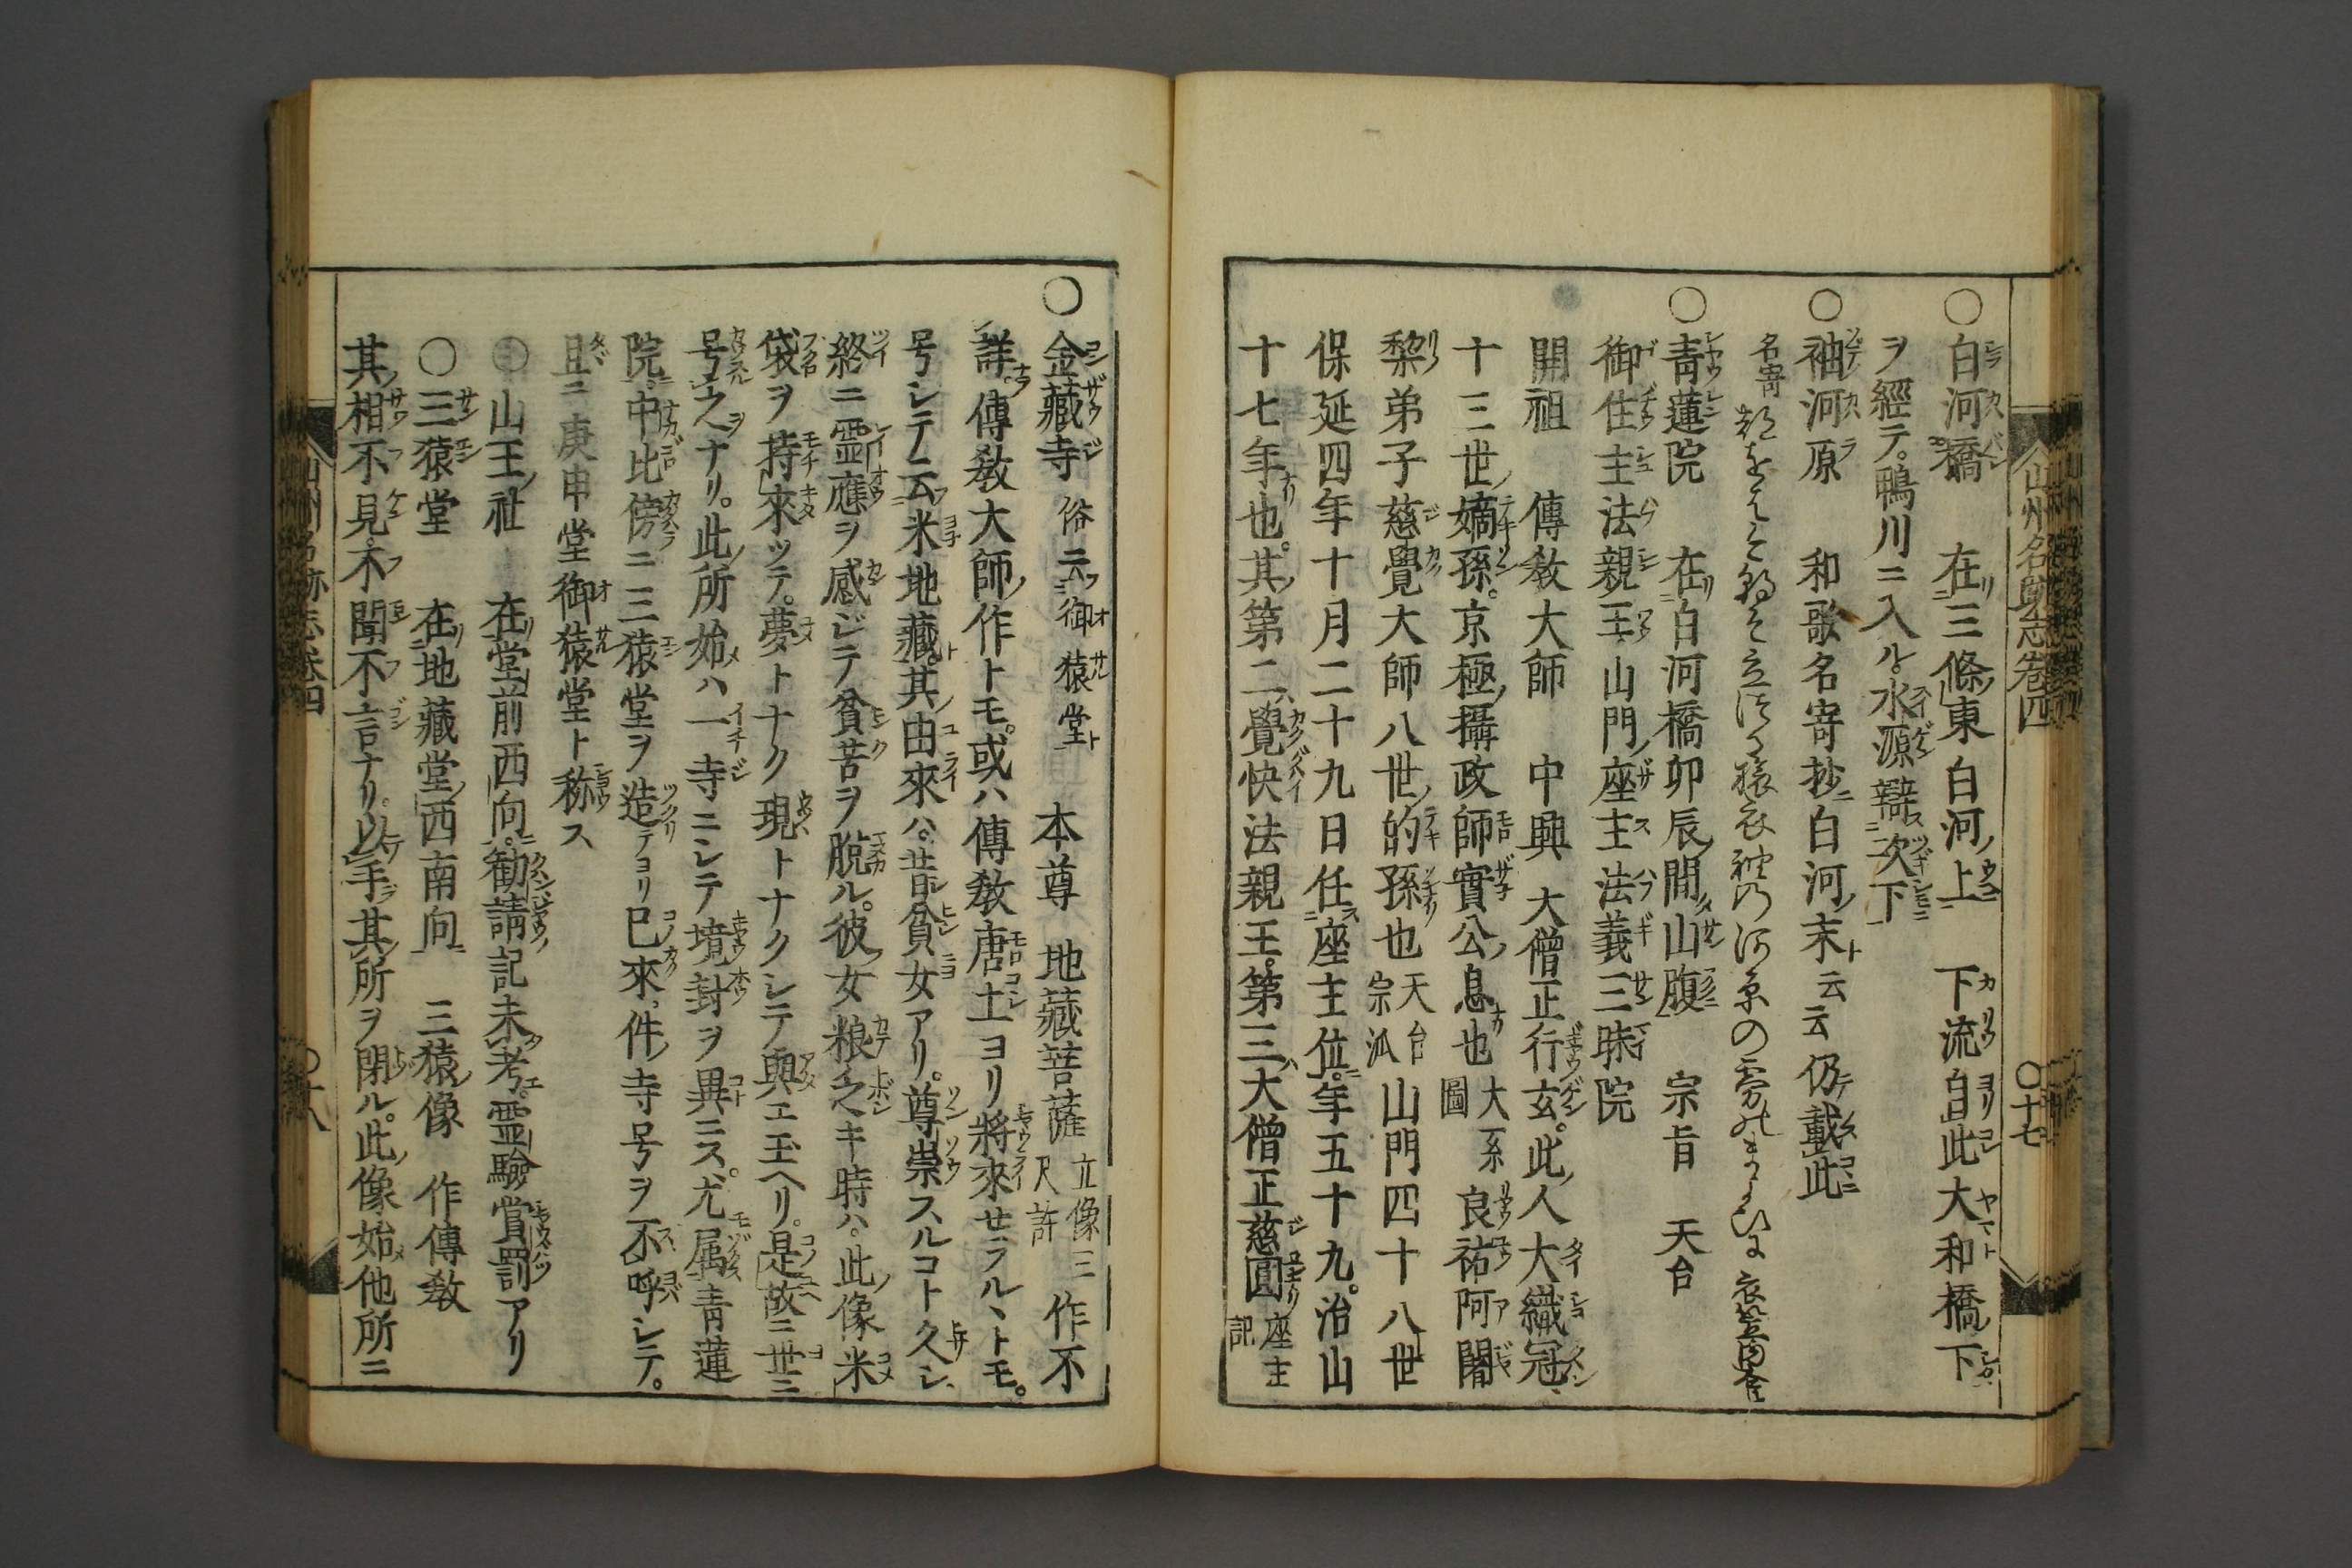 ○白河橋　在三條東白河上　下流自此大和橋下
ヲ經テ。鴨川ニ入ル。水源辯次下
○袖河原　和歌名寄抄白河末云云仍載此
名寄
○青蓮院　在白河橋卯辰間山腹　宗旨　天台
御住主法親王山門座主法義三昧院
開祖　傳敎大師　中興　大僧正行玄。此人大織冠
十三世嫡孫。京極攝政師實公息也大系圖良祐阿闍
黎弟子慈覺大師八世的孫也天台宗派山門四十八世
保延四年十月二十九日任座主位。年五十九。治山
十七年也。其第二覺快法親王。第三大僧正慈圓座主記
山州名跡志卷四　○十七
○金藏寺　俗云御猿堂　本尊　地藏菩薩立像三尺許作不
詳。傳敎大師作トモ。或ハ傳敎唐土ヨリ將來せラル丶トモ。
号シテ云米地藏其由來ハ。昔貧女アリ。尊崇スルコト久シ
終ニ霊應ヲ感ジテ貧苦ヲ脱ル。彼女粮乏キ時ハ。此像米
袋ヲ持來ッテ。夢トナク現トナクシテ與エ玉ヘリ。是故ニ世ニ
号之ナリ。此所始ハ一寺ニシテ境封ヲ異ニス。尤属青蓮
院。中比傍ニ三猿堂ヲ造テヨリ已來。件寺号ヲ不呼シテ。
且ニ庚申堂御猿堂ト称ス
○山王社　在堂前西向。勧請記未考。霊驗賞罰アリ
○三猿堂　在地藏堂西南向　三猿像　作傳敎
其相不見。不聞不言ナリ。以手其所ヲ閉ル。此像始他所ニ
山州名跡志卷四　○十八